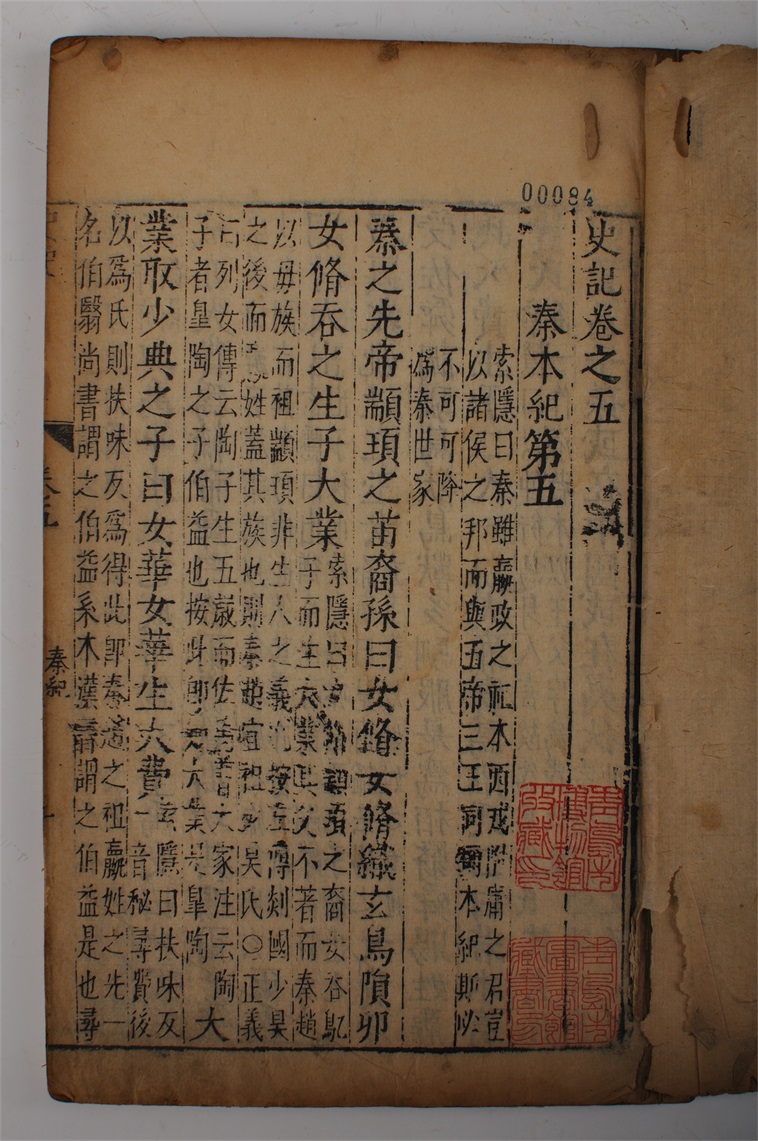 00084
史記卷之五
秦本紀第五
索隱曰秦雖嬴政之祖本西戎附庸之君豈
以諸侯之邦而與五帝三王同稱本紀斯必
不可可降
爲秦世家
秦之先帝顓頊之苗裔孫曰女脩女脩織玄鳥隕卵
女脩吞之生子大業
索隱曰女脩顓頊之裔女吞鳦
子而生大業其父不著而秦趙
以母族而祖顓頊非生人之義也按左傳郯國少昊
之後而嬴姓蓋其族也則秦趙宜祖少昊氏○正義
曰列女傳云陶子生五歲而佐禹曹大家注云陶
子者皇陶之子伯益也按此即知大業是皐陶
大
業取少典之子曰女華女華生大費
索隱曰扶味反
一音秘尋費後
以爲氏則扶味反爲得此即秦趙之祖嬴姓之先一
名伯翳尚書謂之伯益系本漢書謂之伯益是也尋
卷五
秦紀